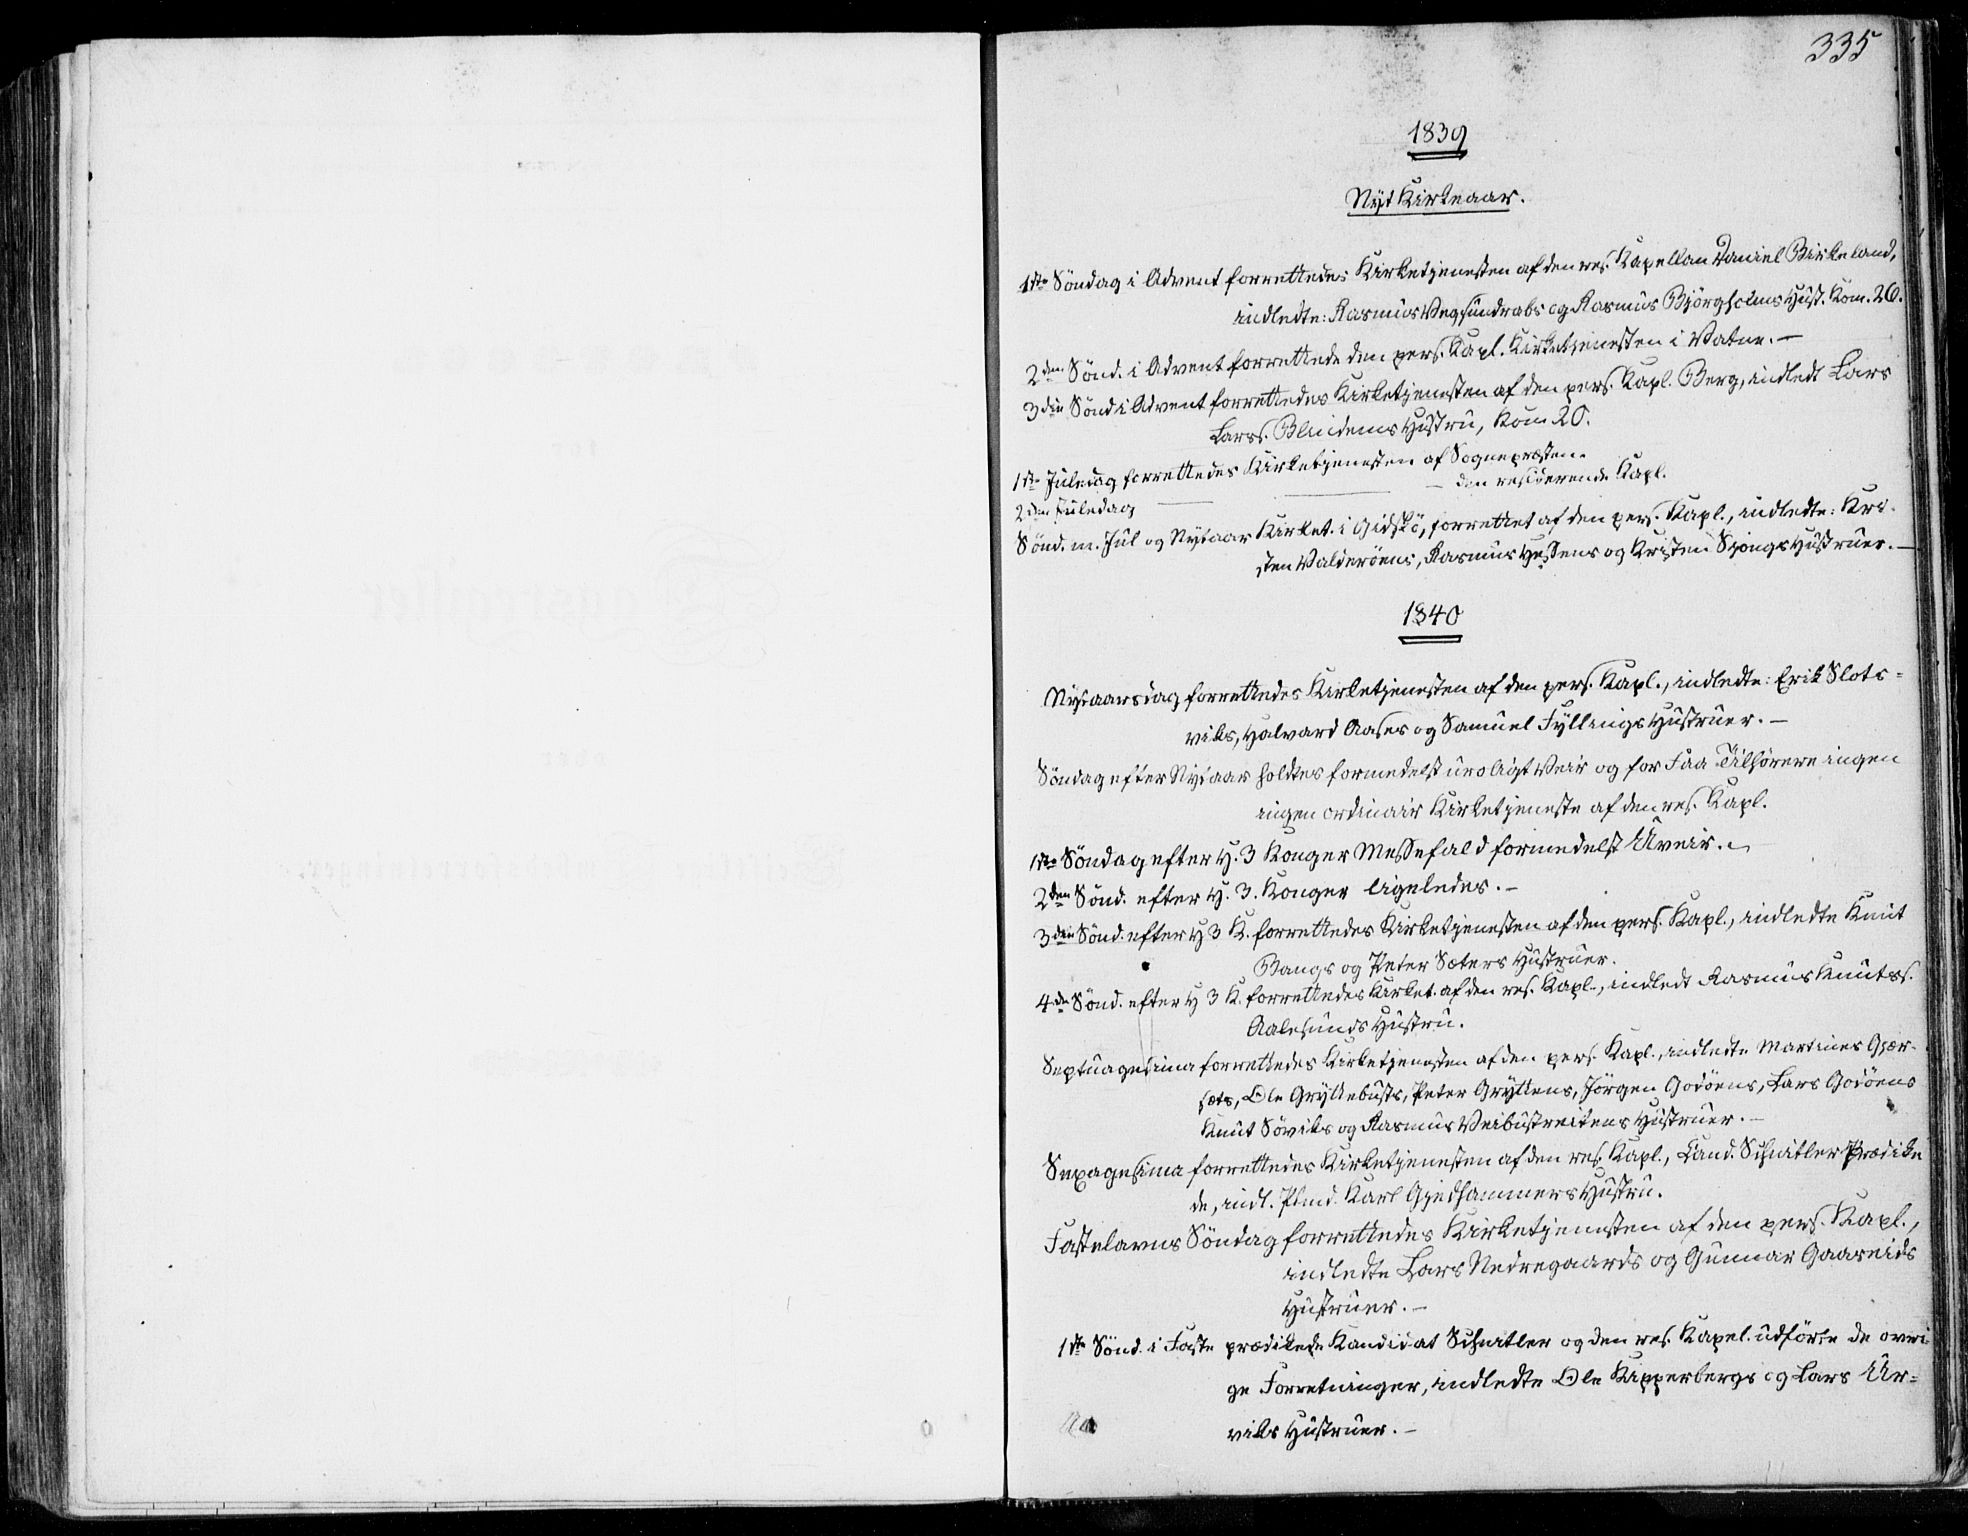 335
1839
Nyt Kirkeaar.
1ste Söndag i Advent forrettedes Kirketjenesten af den res. Kapellan Daniel Birkeland,
indledte: Rasmus Vegsundrabs og Rasmus Bjørgholms Hust. Kom. 26.
2den Sönd. i Advent forrettede den pers. Kapl. Kirketjenesten i Vatne. —
3die Sönd i Advent forrettedes Kirketjenesten af den pers. Kapl. Berg, indledt Lars
Larss. Blindems Hustru, Kom 20.
1ste Juledag forrettedes Kirketjenesten af Sognepræsten.
2den Juledag — — — den residerende Kapl.
Sönd. m. Jul og Nytaar Kirket. i Gidskö, forrettet af den pers. Kapl., indledte: Kri-
sten Valderöens, Rasmus Hessens og Kristen Skjongs Hustruer. —
1840
Nytaarsdag forrettedes Kirketjenesten af den pers. Kapl., indledte: Erik Slots-
viks, Halvard Aases og Samuel Fyllings Hustruer. —
Söndag efter Nytaar holdtes formedelst uroligt Veir og for Faa Tilhörere ingen
ingen ordinair Kirketjeneste af den res. Kapl.
1ste Söndag efter H. 3 Konger Messefald formedelst Uveir. —
2den Sönd. efter H. 3. Konger ligeledes. —
3die Sönd. efter H 3 K. forrettedes Kirketjenesten af den pers. Kapl., indledte Knut
Bangs og Peter Sæters Hustruer.
4de Sönd. efter H 3 K. forrettedes Kirket. af den res. Kapl., indledt Rasmus Knutss.
Aalesunds Hustru.
Septuagesima forrettedes Kirketjenesten af den pers. Kapl., indledte Martines Gjær-
sets, Ole Gryttebusts, Peter Gryttens, Jörgen Godöens, Lars Godöens
Knut Söviks og Rasmus Veibustreitens Hustruer. —
Sexagesima forrettedes Kirketjenesten af den res. Kapl., Cand. Schnitler Prædike
de, indl. Plmd. Karl Gjedhammers Hustru.
Fastelavns Söndag forrettedes Kirketjenesten af den pers. Kapl.,
indledte Lars Nedregaards og Gunnar Gaaseids
Hustruer. —
1ste Sönd. i Faste prædikede Kandidat Schnitler og den res. Kapel. udförte de övri
ge Forretninger, indledte Ole Kipperbergs og Lars Ur-
viks Hustruer. —